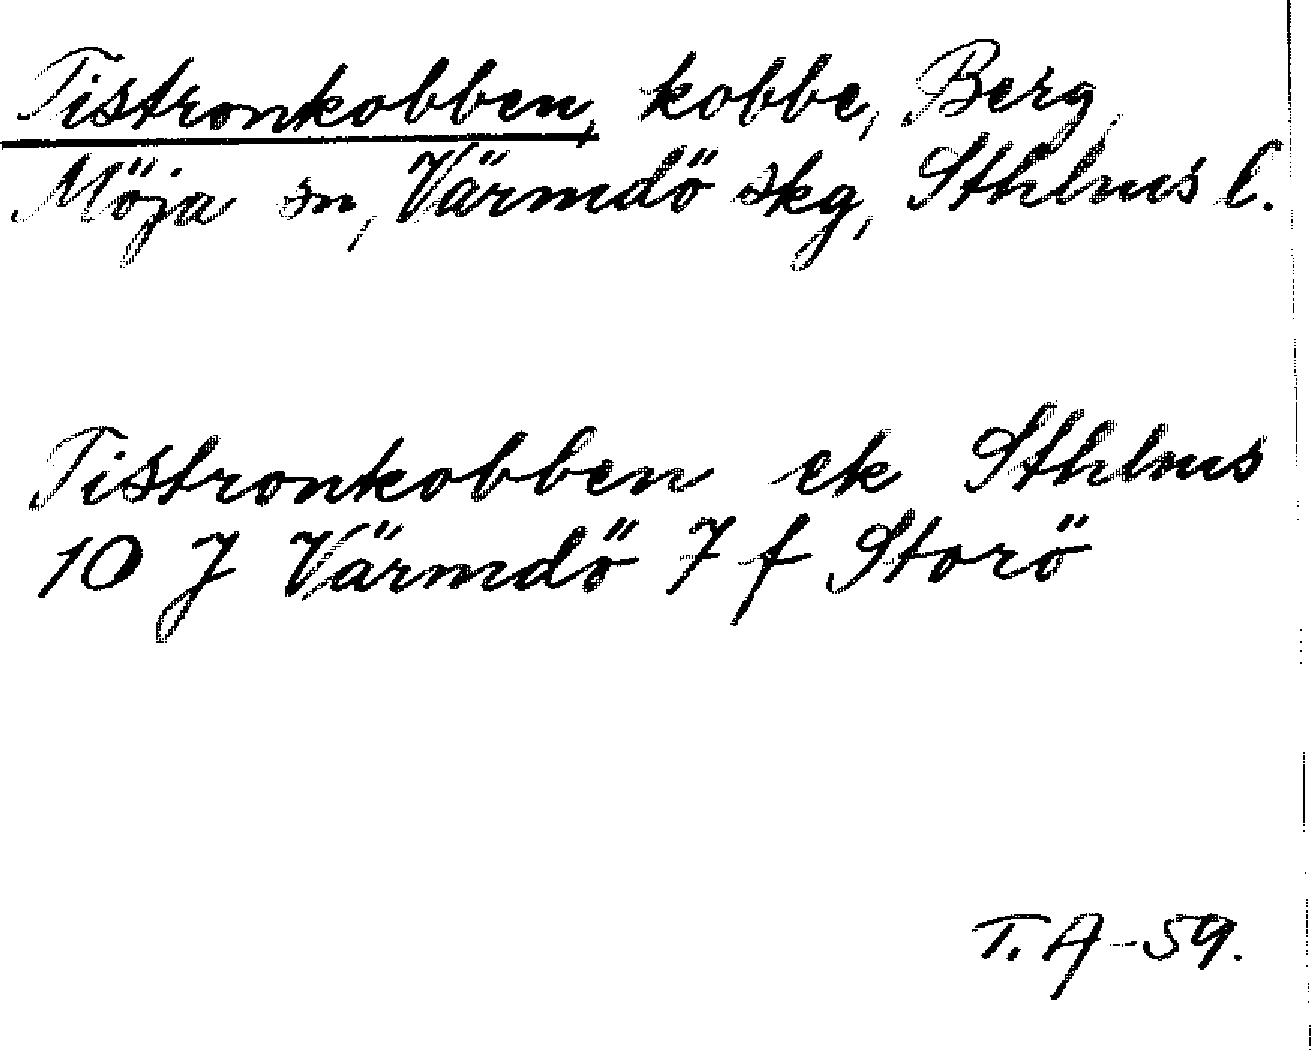 Tistronkobben, kobbe, Berg,
Möja sn, Värmdö skg, Sthlms l.
Tistronkobben ek Sthlms
10 J Värmdö 7 f Storö
T. A-59.